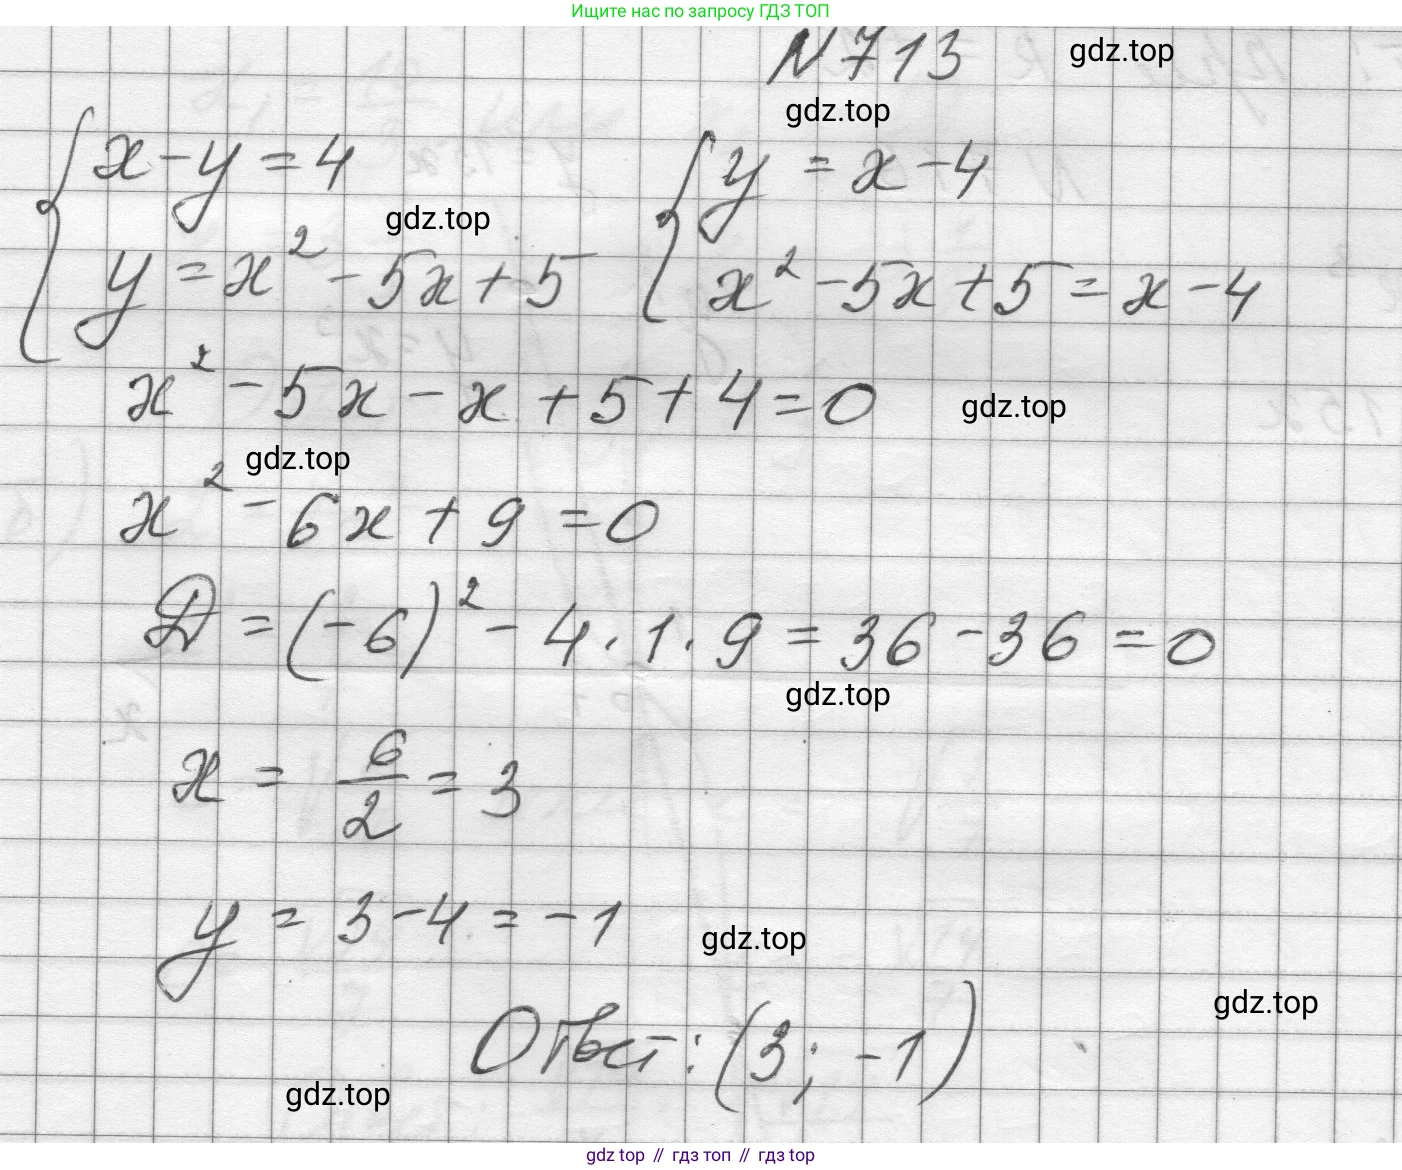 Ищите нас по запросу ГДЗ ТОП
N 713
gdz.top
gdz.top
x - y = 4
y = x - 4
gdz.top
y = x² - 5x + 5
x² - 5x + 5 = x - 4
x² - 5x - x + 5 + 4 = 0
gdz.top
gdz.top
x² - 6x + 9 = 0
D = (-6)² - 4 · 1 · 9 = 36 - 36 = 0
gdz.top
x = 6/2 = 3
y = 3 - 4 = -1
gdz.top
gdz.top
Ответ: (3; -1)
gdz.top
gdz top // гдз топ // гдз top